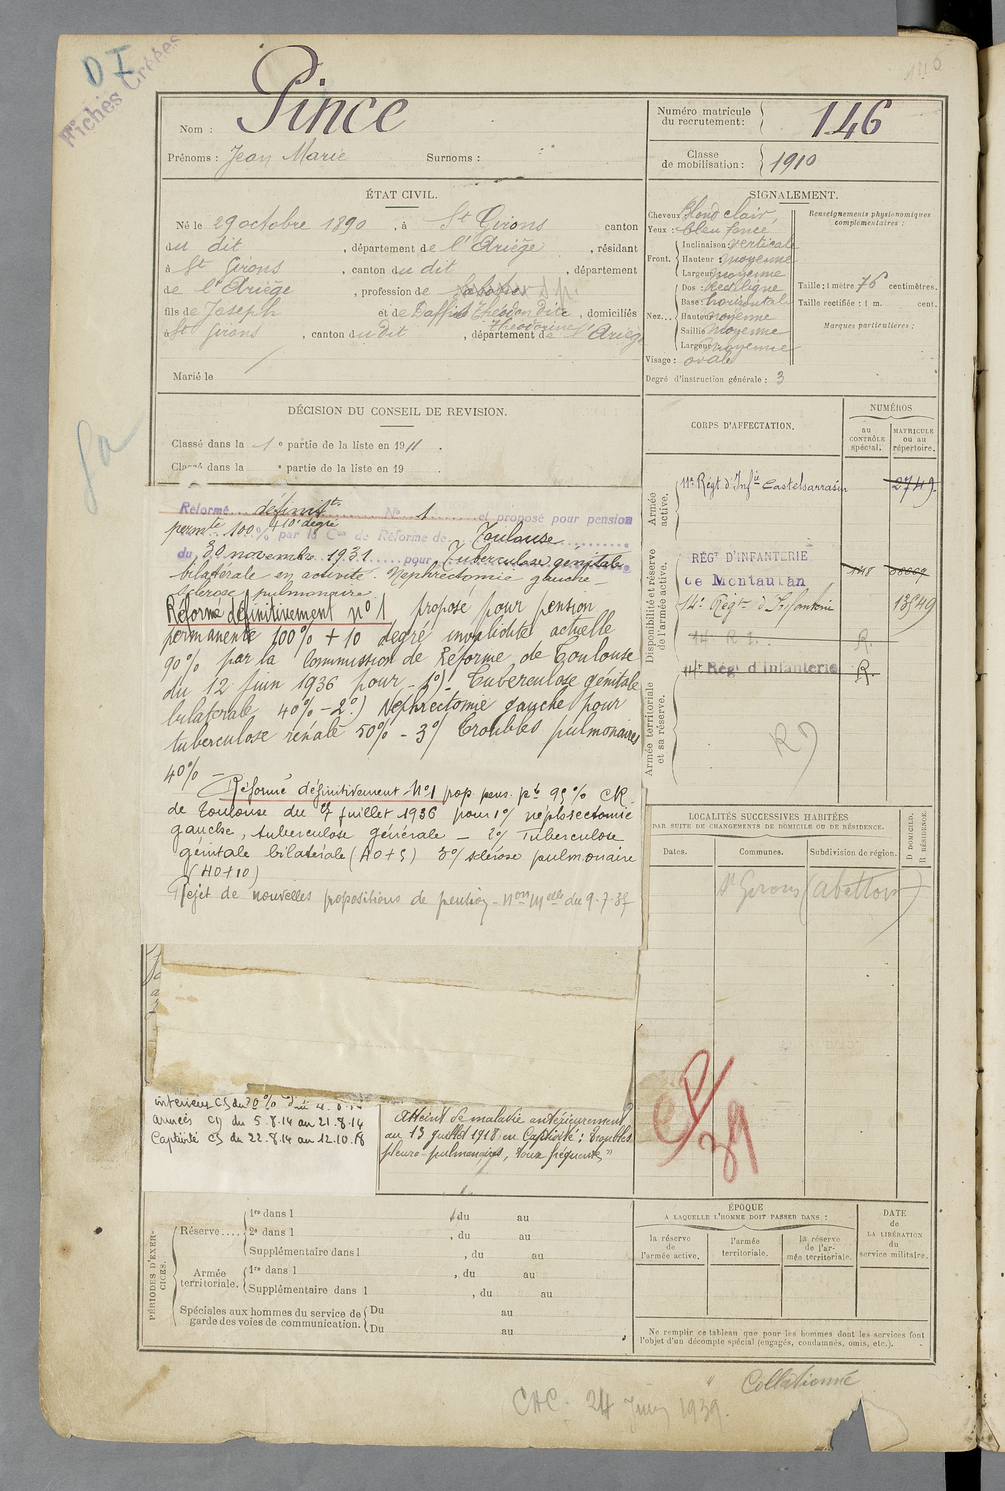 D I
Fiches Créées
Nom : Pince
Prénoms : Jean Marie Surnoms :
Numéro matricule du recrutement : 146
Classe de mobilisation : 1910
ÉTAT CIVIL.
Né le 29 octobre 1890, à St Girons canton
du dit, département de l'Ariège, résidant
à St Girons, canton du dit, département
de l'Ariège, profession de
fils de Joseph et de Théodorine, domiciliés
à St Girons, canton du dit, département de l'Ariège
Marié le
SIGNALEMENT.
Cheveux blond clair,
Yeux : bleu foncé
Front. Inclinaison verticale
Hauteur : moyenne
Largeur moyenne
Nez... Dos : rectiligne
Base : horizontale
Hauteur moyenne
Saillie moyenne
Largeur moyenne
Visage : ovale
Degré d'instruction générale : 3
Renseignements physionomiques
complémentaires :
Taille : 1 mètre 76 centimètres.
Taille rectifiée : 1 m. cent.
Marques particulières :
DÉCISION DU CONSEIL DE REVISION.
Classé dans la 1e partie de la liste en 1911.
Classé dans la e partie de la liste en 19 .
Réformé définitt N° 1 et proposé pour pension
permte 100% + 10 degré par la Con de Réforme de Toulouse
du 30 novembre 1931 pour Tuberculose génitale
bilatérale en activité. Nephrectomie gauche -
Sclérose pulmonaire.
Réformé définitivement n°1 proposé pour pension
permanente 100% + 10 degré invalidité actuelle
90% par la Commission de Réforme de Toulouse
du 12 Juin 1936 pour - 1°) Tuberculose génitale
bilatérale 40% - 2°) Nephrectomie gauche pour
tuberculose rénale 50% - 3°/ Troubles pulmonaires
40% -
Réformé définitivement N°1 prop. pens. pte 95% CR.
de Toulouse du 7 juillet 1936 pour 1°/ néphrectomie
gauche, tuberculose générale - 2°/ Tuberculose
génitale bilatérale (40+5) 3°/ sclérose pulmonaire
(40+10)
Rejet de nouvelles propositions de pension -
CORPS D'AFFECTATION.
NUMÉROS
au CONTRÔLE spécial.
MATRICULE ou au répertoire.
Armée active.
11e Régt d'Infie Castelsarrasin 2749
Disponibilité et réserve de l'armée active.
RÉGt D'INFANTERIE
de Montauban
14e Régt d'Infanterie 13549
14e R.I. R.
Armée territoriale et sa réserve.
14e Régt d'Infanterie R.
LOCALITÉS SUCCESSIVES HABITÉES
PAR SUITE DE CHANGEMENTS DE DOMICILE OU DE RÉSIDENCE.
Dates. Communes. Subdivision de région. D DOMICILE. R RÉSIDENCE.
St Girons
39
armées CS du 5.8.14 au 21.8.14
Captivité CS du 22.8.14 au 12.10.18
Atteint de maladie antérieurement
au 13 juillet 1918 en Captivité : Troubles
pleuro-pulmonaires, toux fréquente"
PÉRIODES D'EXERCICES.
Réserve.... 1re dans l , du au
2e dans l , du au
Supplémentaire dans l , du au
Armée territoriale. 1re dans l , du au
Supplémentaire dans l , du au
Spéciales aux hommes du service de
garde des voies de communication. Du au
Du au
ÉPOQUE
A LAQUELLE L'HOMME DOIT PASSER DANS :
la réserve de l'armée active.
l'armée territoriale.
la réserve de l'armée territoriale.
DATE de LA LIBÉRATION du service militaire.
Ne remplir ce tableau que pour les hommes dont les services font
l'objet d'un décompte spécial (engagés, condamnés, omis, etc.).
Collationné
24 Juin 1939.